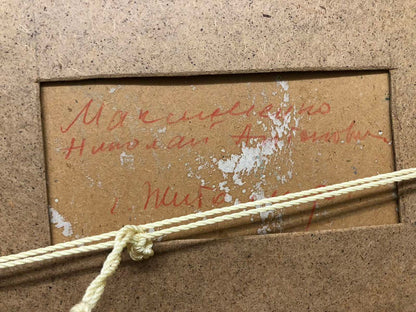 Максименко
Николай Антонович
г. Жита